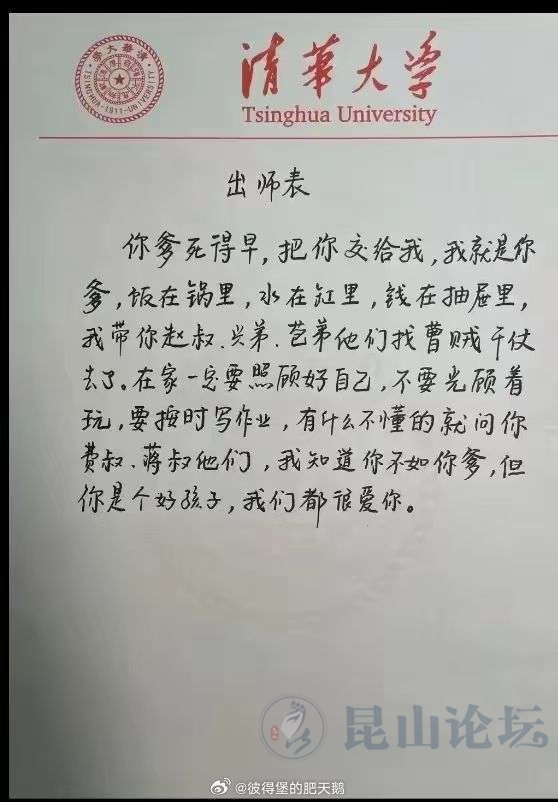 清華大学
Tsinghua University
TSINGHUA-1911-UNIVERSITY
出师表
你爹死得早，把你交给我，我就是你
爹，饭在锅里，水在缸里，钱在抽屉里，
我带你赵叔、兴弟、苞弟他们找曹贼干仗
去了。在家一定要照顾好自己，不要光顾着
玩，要按时写作业，有什么不懂的就问你
费叔、蒋叔他们，我知道你不如你爹，但
你是个好孩子，我们都很爱你。
昆山论坛
@彼得堡的肥天鹅